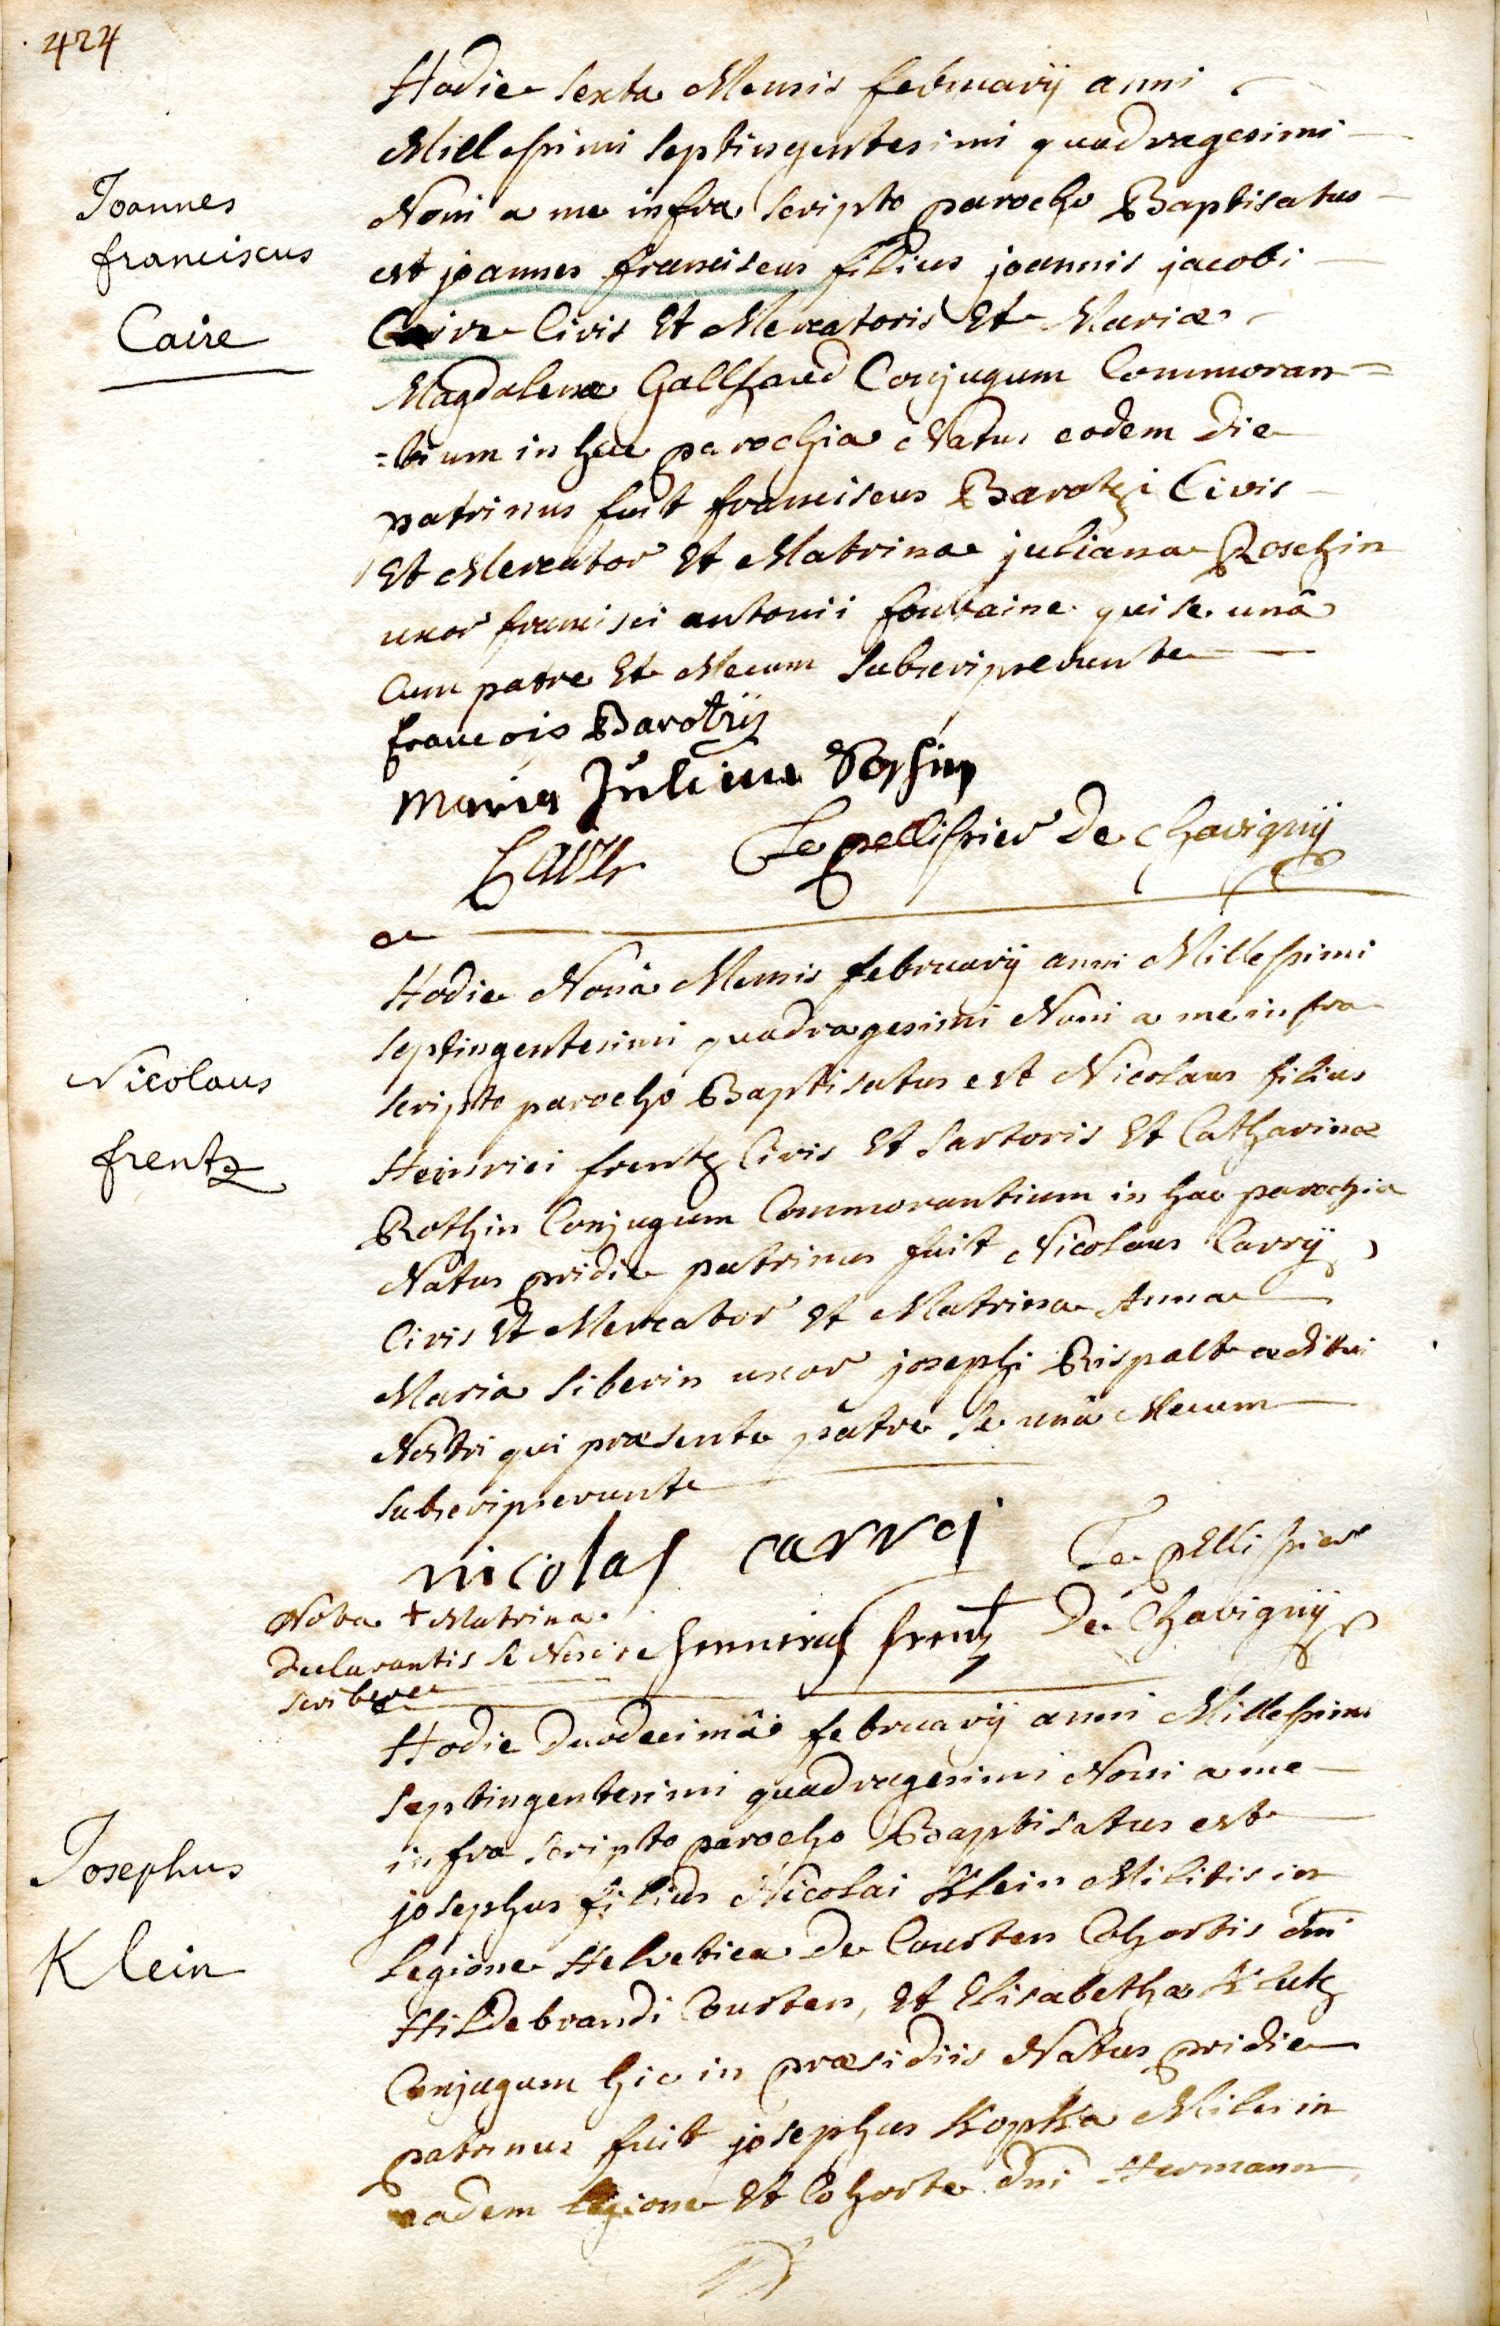 424
Hodie sexta Mensis februarij anni
Millesimi septingentesimi quadragesimi
Noni a me infra scripto parocho Baptisatus
Joannes
franciscus
Caire
est joannes franciscus filius joannis jacobi
Caire Civis Et Mercatoris Et Mariæ
Magdalenæ Gallhaud Conjugum Commoran=
=tium in hac parochia Natus eodem die
patrinus fuit franciscus Barotzi Civis
Et Mercator Et Matrina juliana Roschin
uxor francisci antonii fontaine qui se unâ
Cum patre Et Mecum subscripserunt
francois Barotzÿ
Maria Juliana
Caire Le pellissier De Chavignÿ
Hodie Nonâ Mensis februarij anni Millesimi
septingentesimi quadragesimi Noni a me infra
Nicolaus
frentz
scripto parocho Baptisatus est Nicolaus filius
Heinrici frentz Civis Et sartoris Et Catharinæ
Rothin Conjugum Commorantium in hac parochia
Natus pridie patrinus fuit Nicolaus Carrÿ
Civis Et Mercator Et Matrina Anna
Maria Siberin uxor josephi Rispalt æditui
Nostri qui præsente patre se unâ Mecum
subscripserunt
nicolas carrej Le pellissier
De Chavignÿ
Nota + Matrina
Declarantis se Nescire henricus frentz
scribere
Hodie Duodecimâ februarij anni Millesimi
septingentesimi quadragesimi Noni a me
infra scripto parocho Baptisatus est
Josephus
Klein
josephus filius Nicolai Klein Militis in
Legione Helvetica De Courten Cohortis dni
Hildebrandi Courten, Et Elisabetha Klutz
Conjugum hic in præsidiis Natus pridie
patrinus fuit josephus Kopka Miles in
eadem legione Et Cohorte dni Hermann